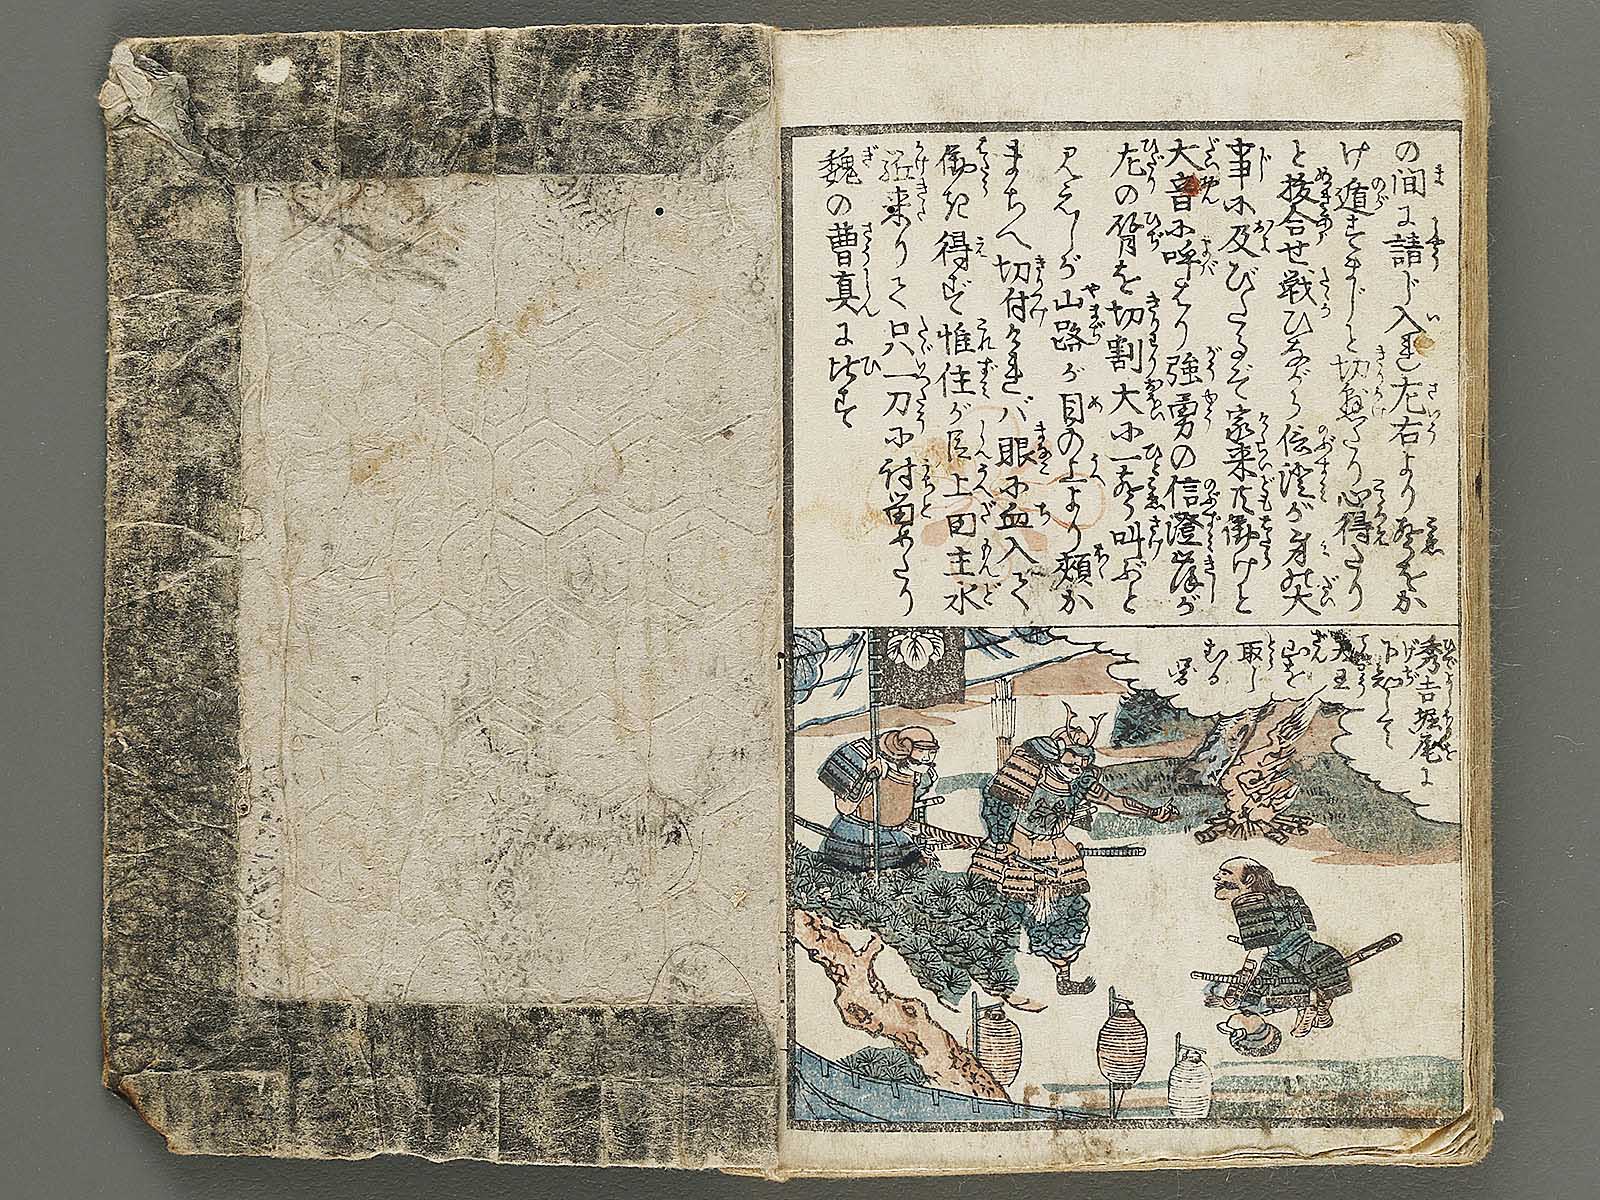 の間に請じ入れ左右より声をか
け遁すまじと切懸たり心得たり
と抜合せ戦ひながら信澄が身の大
事に及びたるぞ家来共働けと
大音に呼はり強勇の信澄が
左の臂を切割大に一声叫ぶと
見えしが山路が目の上より頬か
まちへ切付ければ眼に血入て
働き得ず惟住が臣上田主水
駈来りて只一刀に討留めたり
魏の曹真に比す
秀吉堀尾に
下知して
天王
山を
取し
むる